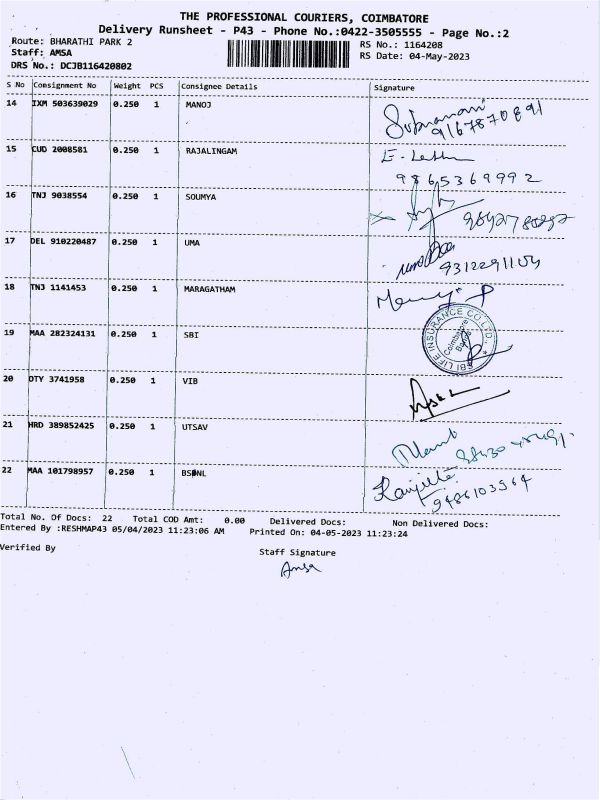 THE PROFESSIONAL COURIERS, COIMBATORE
Delivery Runsheet - P43 - Phone No.:0422-3505555 - Page No.:2
Route: BHARATHI PARK 2
RS No.: 1164208
Staff: AMSA
RS Date: 04-May-2023
DRS No.: DCJB116420802
S No Consignment No Weight PCS Consignee Details Signature
14 IXM 503639029 0.250 1 MANOJ
9167870891
15 CUD 2008581 0.250 1 RAJALINGAM
9865369992
16 TNJ 9038554 0.250 1 SOUMYA
17 DEL 910220487 0.250 1 UMA
9312291104
18 TNJ 1141453 0.250 1 MARAGATHAM
19 MAA 282324131 0.250 1 SBI
SBI LIFE INSURANCE CO LTD.
Coimbatore
20 OTY 3741958 0.250 1 VIB
21 HRD 389852425 0.250 1 UTSAV
22 MAA 101798957 0.250 1 BSNL
9486103564
Total No. Of Docs: 22 Total COD Amt: 0.00 Delivered Docs: Non Delivered Docs:
Entered By :RESHMAP43 05/04/2023 11:23:06 AM Printed On: 04-05-2023 11:23:24
Verified By Staff Signature
Amsa